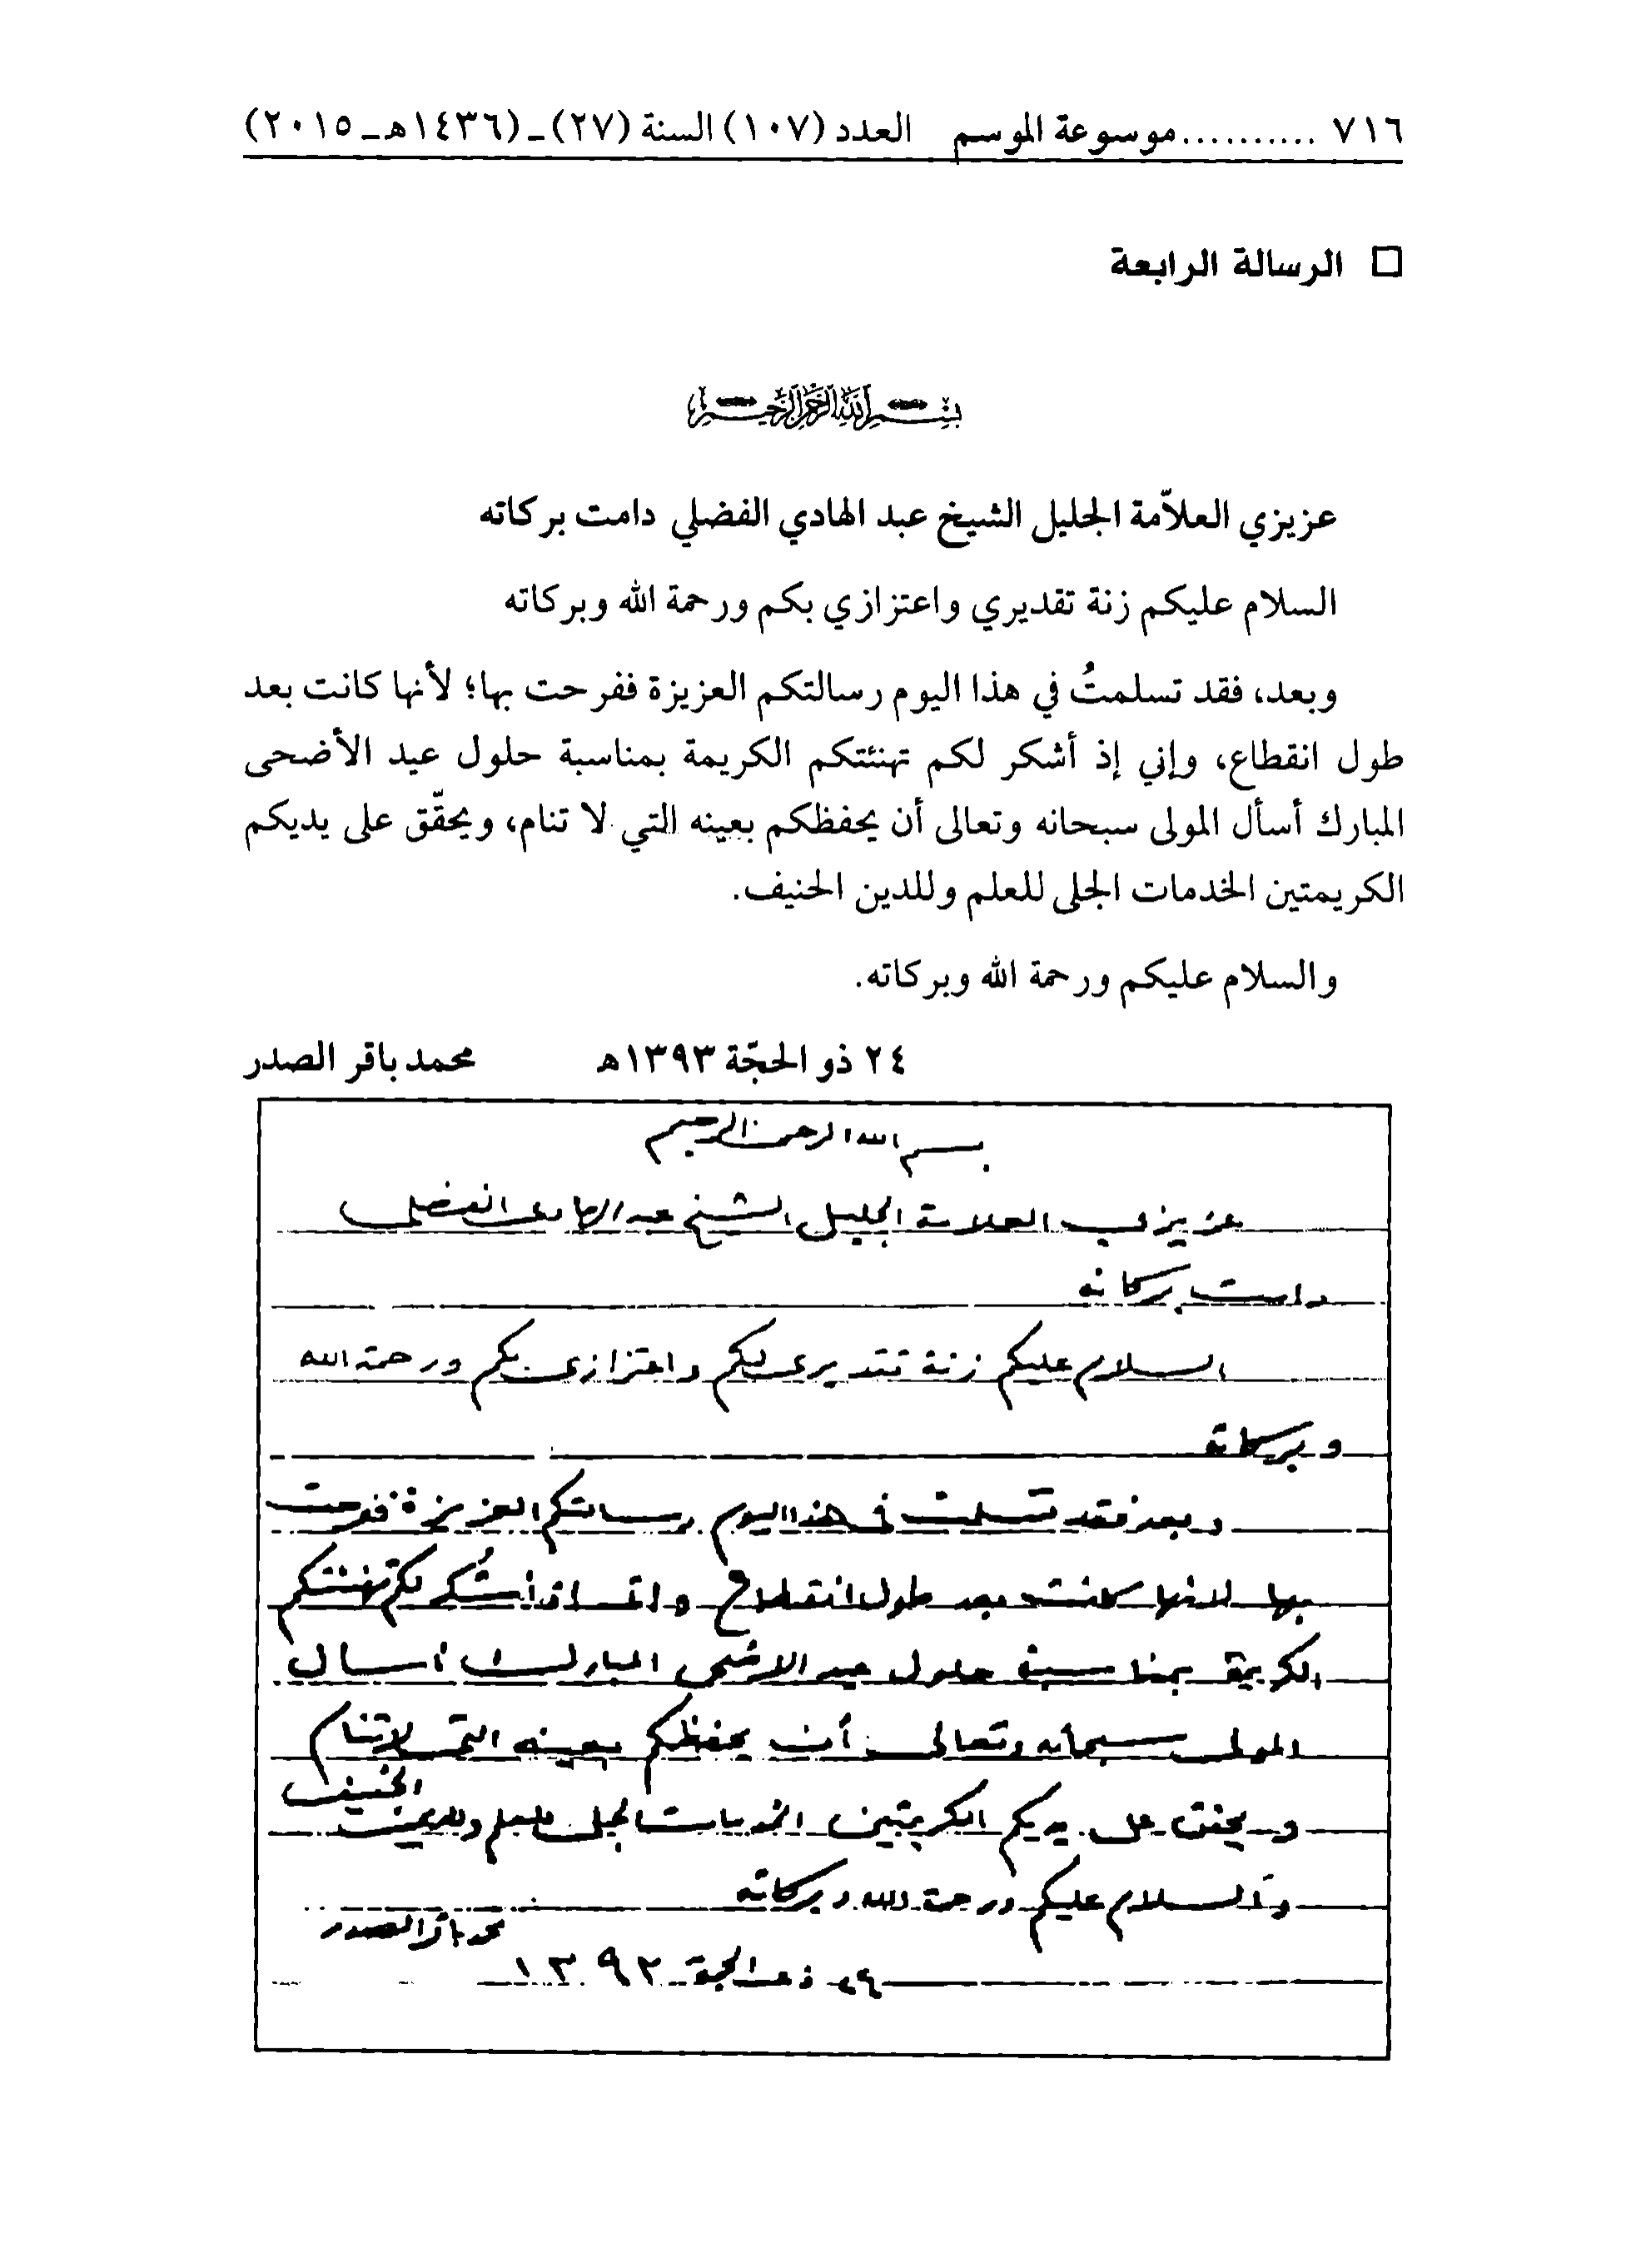 ٧١٦ ..........موسوعة الموسم العدد (١٠٧) السنة (٢٧) ـ (١٤٣٦هـ ـ ٢٠١٥)
□ الرسالة الرابعة
بسم الله الرحمن الرحيم
عزيزي العلاّمة الجليل الشيخ عبد الهادي الفضلي دامت بركاته
السلام عليكم زنة تقديري واعتزازي بكم ورحمة الله وبركاته
وبعد، فقد تسلمتُ في هذا اليوم رسالتكم العزيزة ففرحت بها؛ لأنها كانت بعد
طول انقطاع، وإني إذ أشكر لكم تهنئتكم الكريمة بمناسبة حلول عيد الأضحى
المبارك أسأل المولى سبحانه وتعالى أن يحفظكم بعينه التي لا تنام، ويحقّق على يديكم
الكريمتين الخدمات الجلى للعلم وللدين الحنيف.
والسلام عليكم ورحمة الله وبركاته.
٢٤ ذو الحجّة ١٣٩٣هـ محمد باقر الصدر
بسم الله الرحمن الرحيم
عزيزي العلامة الجليل الشيخ عبد الهادي الفضلي
دامت بركاته
السلام عليكم زنة تقديري لكم واعتزازي بكم ورحمة الله
وبركاته
وبعد فقد تسلمت في هذا اليوم رسالتكم العزيزة ففرحت
بها لانها كانت بعد طول انقطاع واني اذ أشكر لكم تهنئتكم
الكريمة بمناسبة حلول عيد الاضحى المبارك أسأل
المولى سبحانه وتعالى أن يحفظكم بعينه التي لا تنام
ويحقق على يديكم الكريمتين الخدمات الجلى للعلم وللدين الحنيف
والسلام عليكم ورحمة الله وبركاته
محمد باقر الصدر
٢٤ ذي الحجة ١٣٩٣